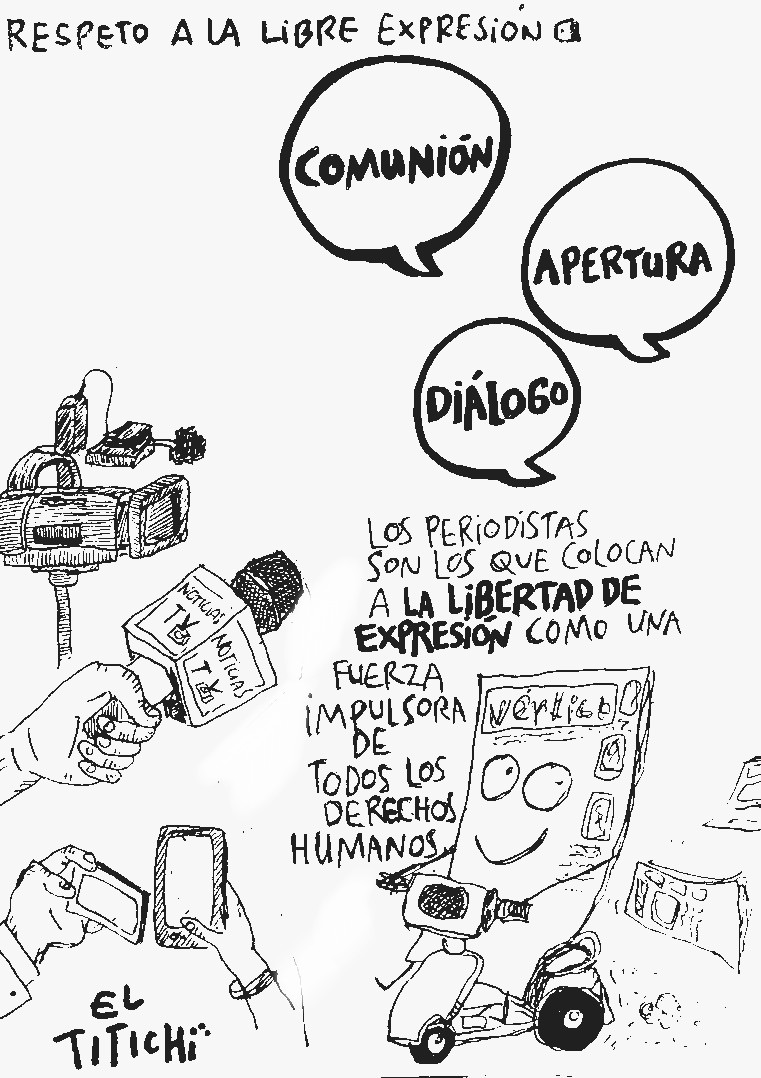 RESPETO A LA LiBRE EXPRESiÓN
COMUNiÓN
APERTURA
DiÁLOGO
LOS PERiODiSTAS
SON LOS QUE COLOCAN
A LA LiBERTAD DE
EXPRESiÓN COMO UNA
FUERZA
iMPULSORA
DE
TODOS LOS
DERECHOS
HUMANOS.
Vértice
NOTICIAS
TV
NOTICIAS
TV
EL
TiTiCHi